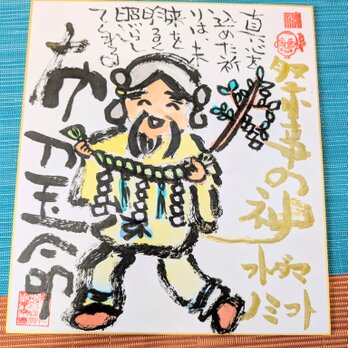 祭事の神
フトダマ
ノミコト
真心を
込めた祈
りは未
来を
明るく
照らし
てくれる